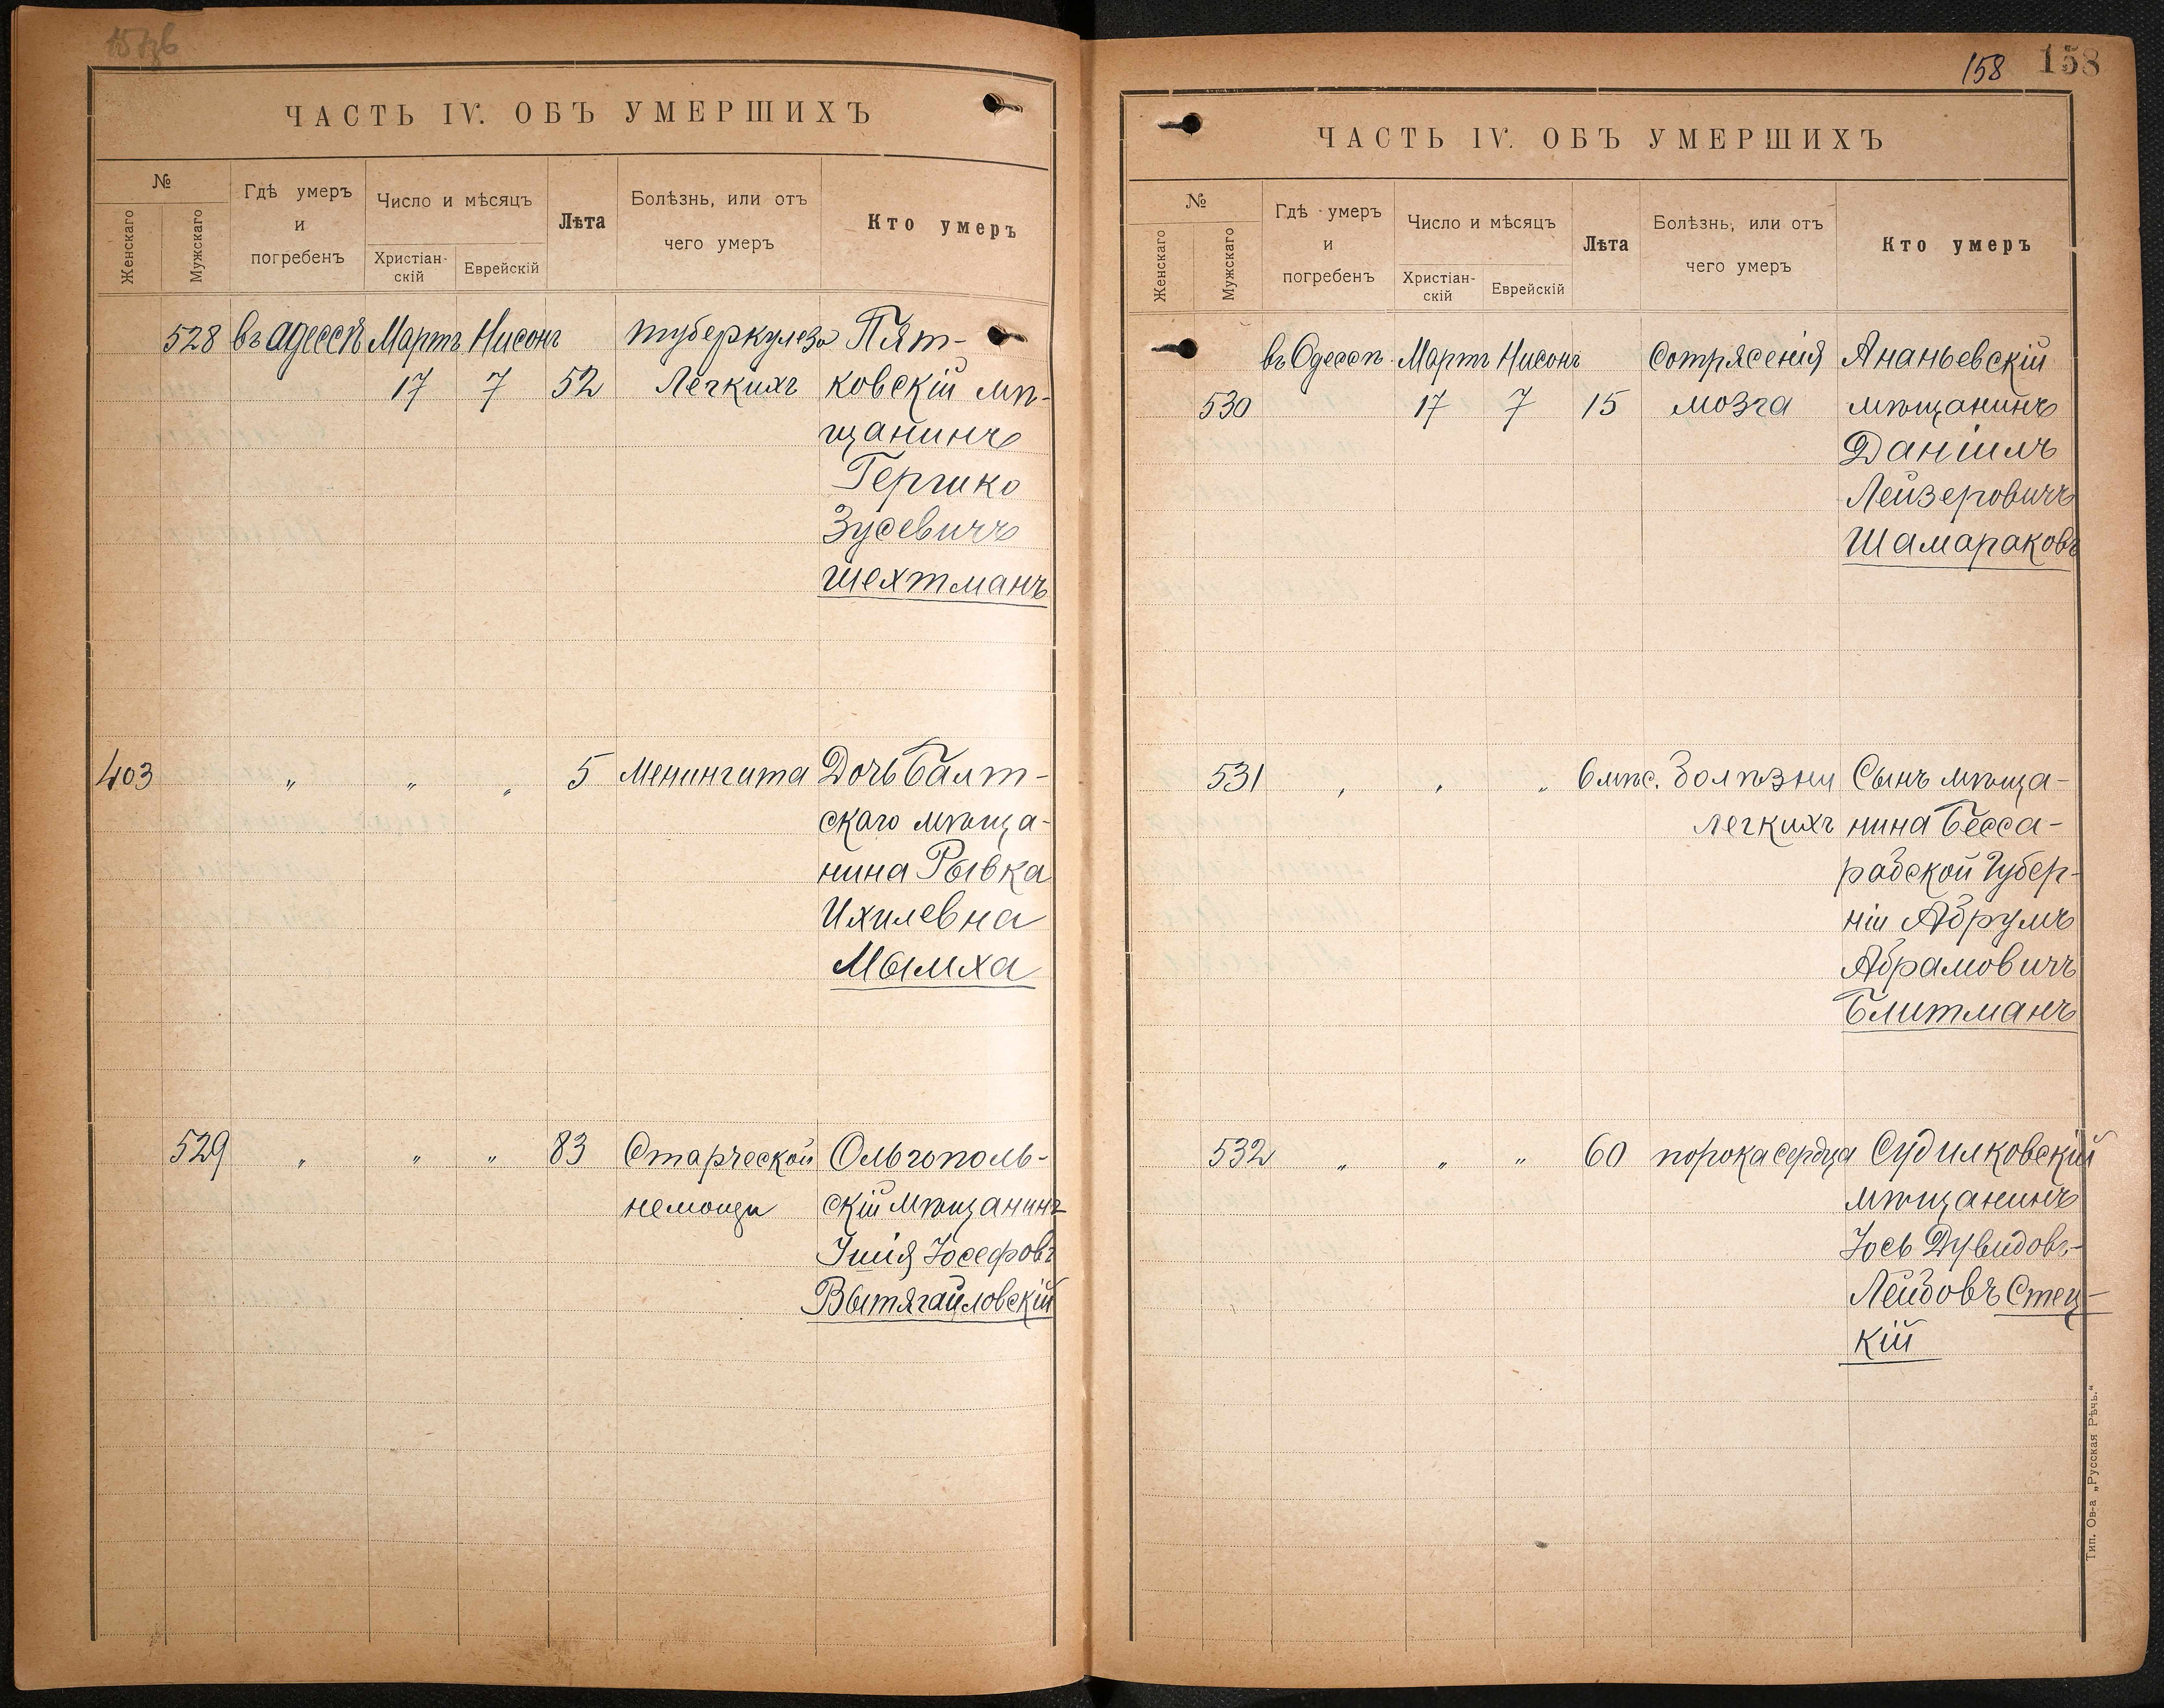 ЧАСТЬ IV. ОБЪ УМЕРШИХЪ
№
Женскаго
Мужскаго
Гдѣ умеръ
и
погребенъ
Число и мѣсяцъ
Христіан-
скій
Еврейскій
Лѣта
Болѣзнь, или отъ
чего умеръ
Кто умеръ
528 въ Адессѣ Мартъ Нисонъ туберкулеза Пят-
17 7 52 Легкихъ ковскій мѣ-
щанинъ
Гершко
Зусевичъ
Шехтманъ
403 „ „ „ 5 Менингита Дочь Балт-
скаго мѣща-
нина Рывка
Ихилевна
Мымха
529 „ „ „ 83 Старческой Ольгополь-
немощи скій мѣщанинъ
Іосефовъ
Вытягайловскій
158 158
ЧАСТЬ IV. ОБЪ УМЕРШИХЪ
№
Женскаго
Мужскаго
Гдѣ умеръ
и
погребенъ
Число и мѣсяцъ
Христіан-
скій
Еврейскій
Лѣта
Болѣзнь, или отъ
чего умеръ
Кто умеръ
въ Одессѣ Мартъ Нисонъ Сотрясенія Ананьевскій
530 17 7 15 мозга мѣщанинъ
Даніилъ
Лейзеровичъ
Шамараковъ
531 „ „ „ 6 мѣс. Болѣзни Сынъ мѣща-
легкихъ нина Бесса-
рабской Губер-
ніи Абрумъ
Абрамовичъ
Блитманъ
532 „ „ „ 60 порока сердца Судилковскій
мѣщанинъ
Іось Дувидовъ-
Лейбовъ Стец-
кій
Тип. Ов-а „Русская Рѣчь.“